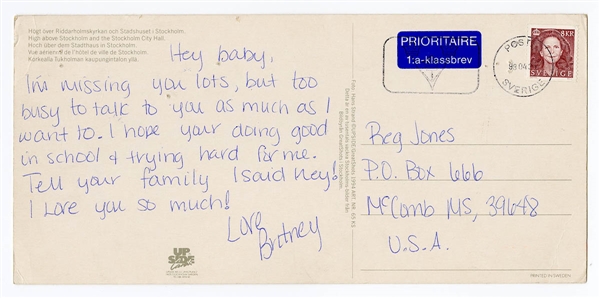 Högt över Riddarholmskyrkan och Stadshuset i Stockholm.
High above Stockholm and the Stockholm City Hall.
Hoch über dem Stadthaus in Stockholm.
Vue aérienne de l'hôtel de ville de Stockholm.
Korkealla Tukholman kaupungintalon yllä.
Hey baby,
I'm missing you lots, but too
busy to talk to you as much as I
want to. I hope your doing good
in school & trying hard for me.
Tell your family I said hey!
I Love you so much!
Love
Britney
PRIORITAIRE
1:a-klassbrev
8 KR
SVERIGE
POST
SVERIGE
Reg Jones
P.O. Box 666
McComb MS, 39648
U.S.A.
UP
SAVE
PRINTED IN SWEDEN